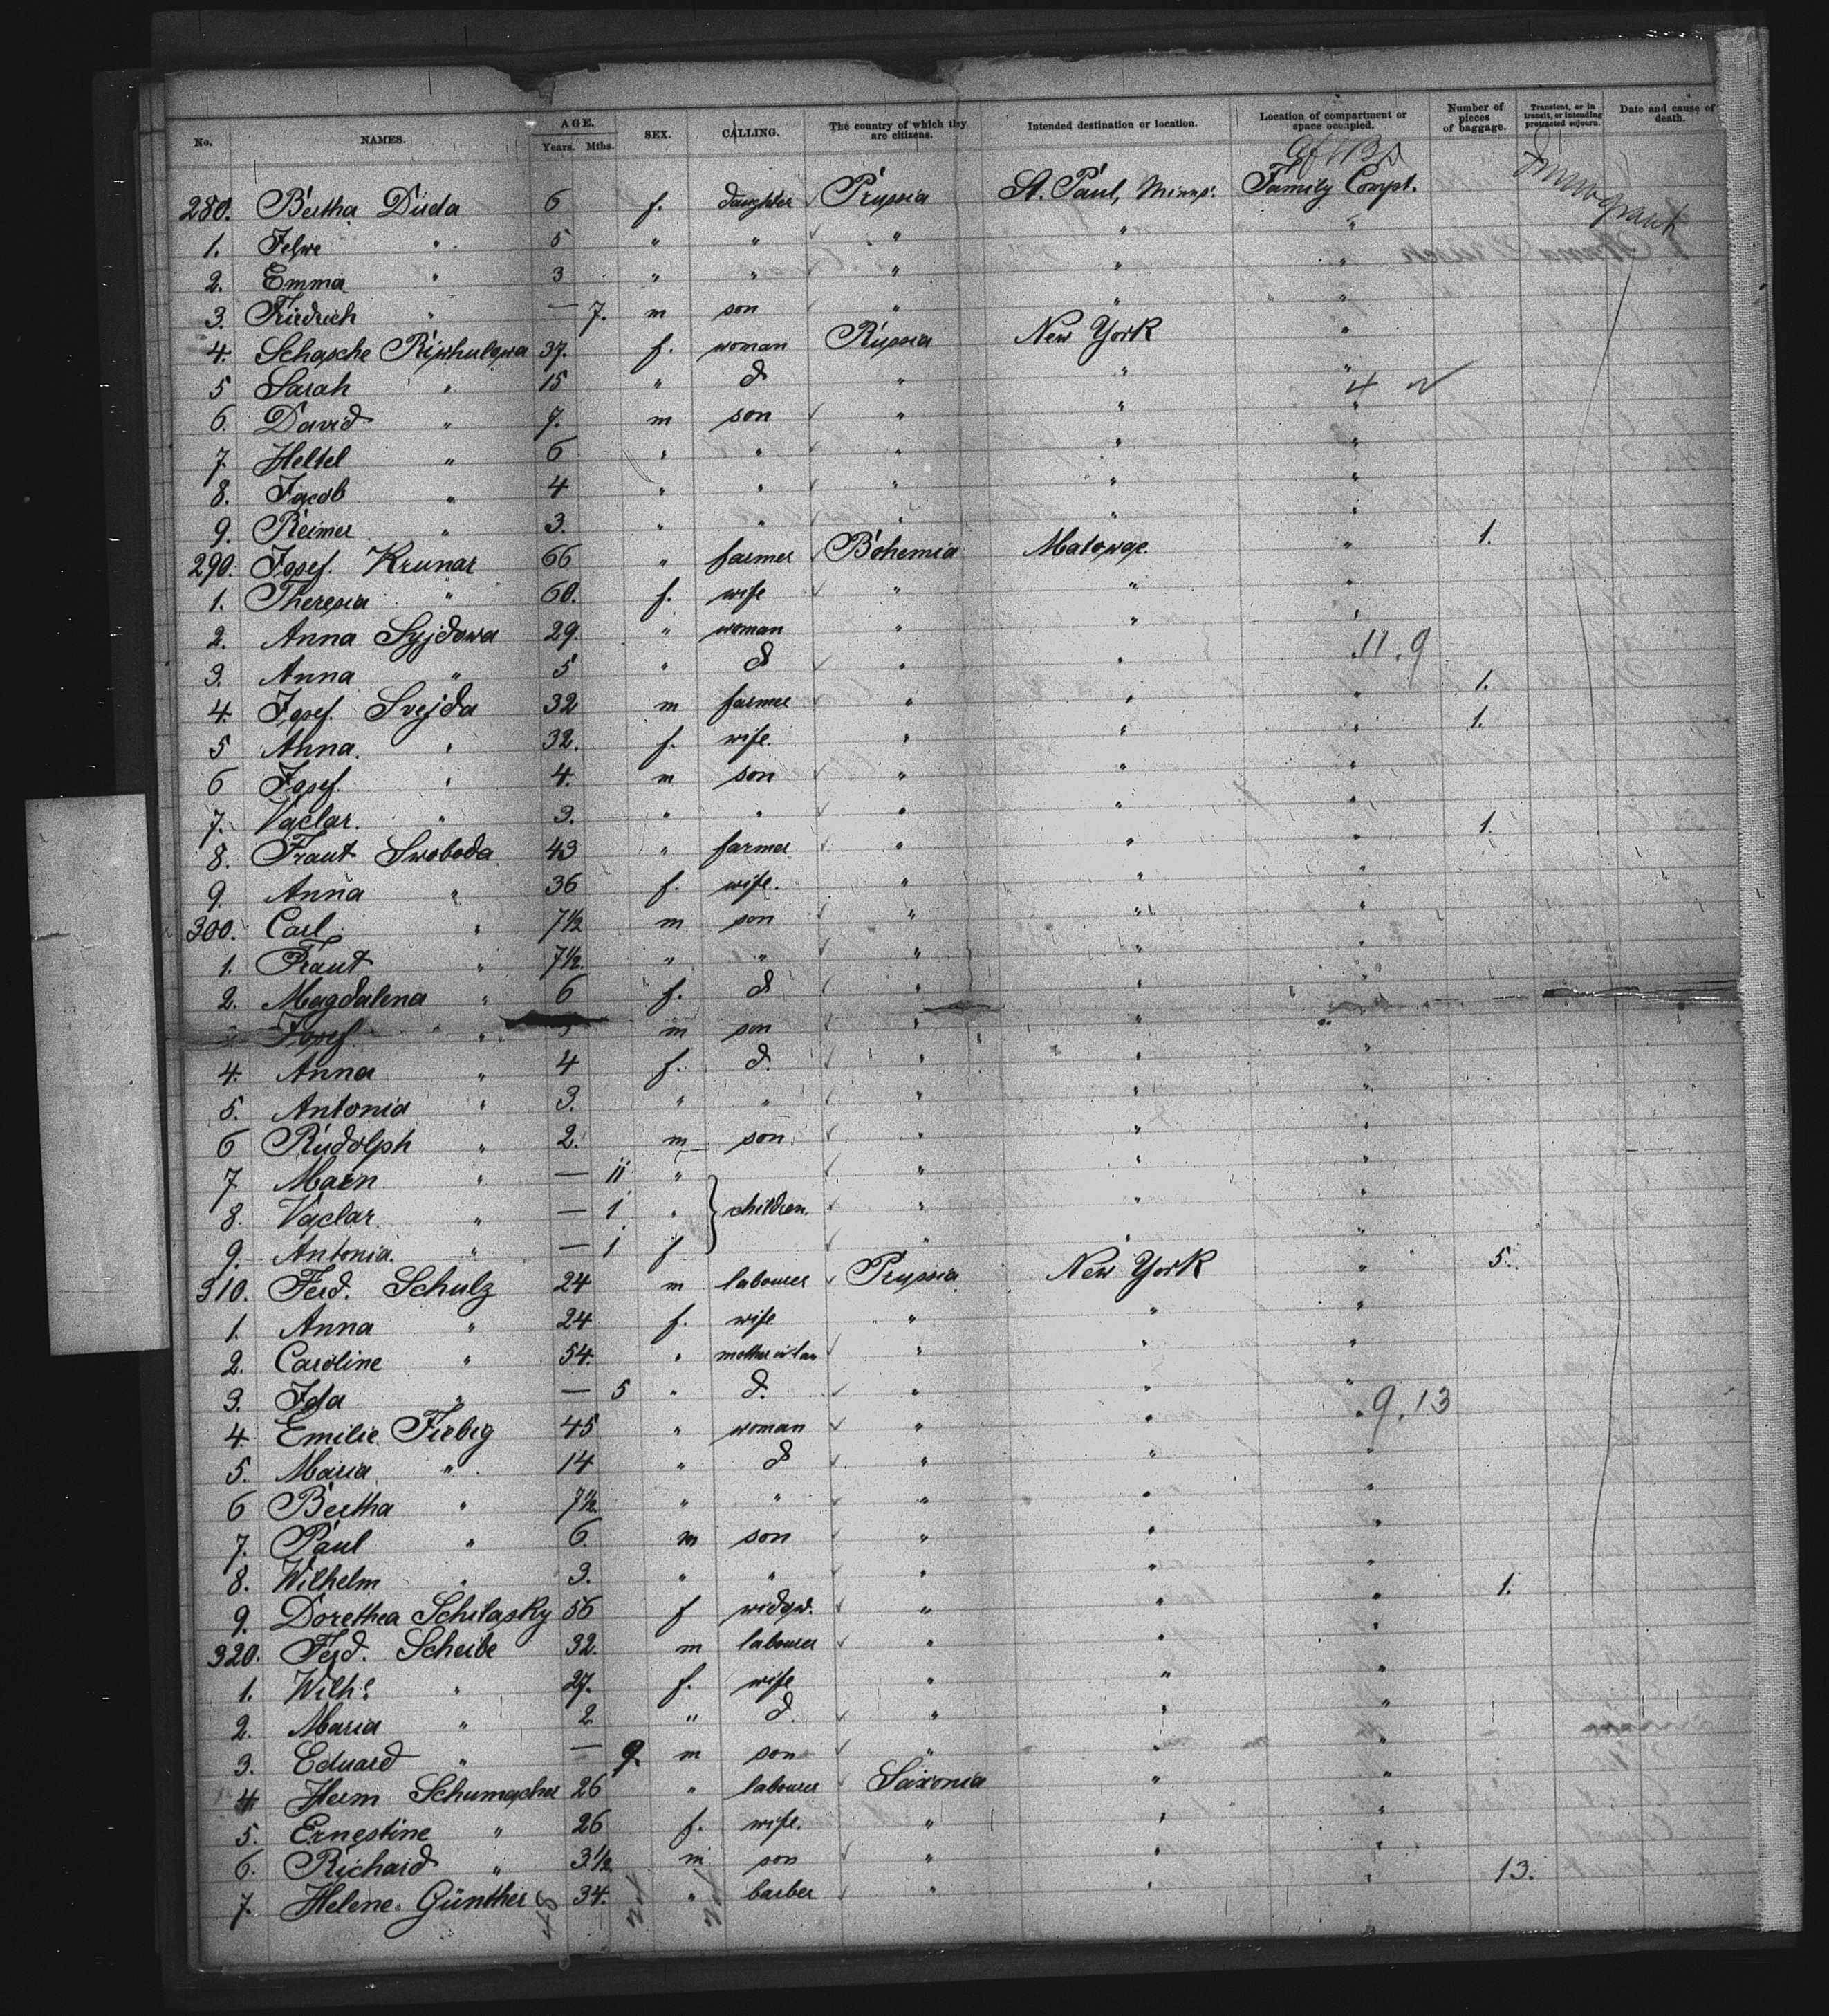 No. NAMES. AGE. Years. Mths. SEX. CALLING. The country of which thy are citizens. Intended destination or location. Location of compartment or space occupied. Number of pieces of baggage. Transient, or in transit, or intending protracted sojourn. Date and cause of death.
280. Bertha Duda 6 f. daughter Prussia St. Paul, Minns. Family Compt.
1. " 5 " " " " "
2. Emma " 3 " " " " "
3. Friedrich " — 7. m son " " "
4. Schasche 37. f. woman Russia New York "
5 Sarah " 15 " d " " " 4
6. David " 7. m son " " "
7. Heltel " 6 " " " " "
8. Jacob " 4 " " " " "
9. Reimer " 3. " " " " "
290. Josef. Krunar 66 " farmer Bohemia " 1.
1. Theresia " 60. f. wife " " "
2. Anna Syjdowa 29. " woman " " "
3. Anna " 5 " d " " " 11.9
4. Josef. Svejda 32 m farmer " " " 1.
5 Anna. " 32. f. wife. " " " 1.
6 Josef. " 4. m son " " "
7. Vaclar. " 3. " " " " "
8. Frant Swoboda 43 " farmer " " " 1.
9. Anna " 36 f. wife. " " "
300. Carl " 7 1/2 m son " " "
1. Frant " 7 1/2. " " " " "
2. Magdalena " 6 f. d " " "
Josef " m son " " "
4. Anna " 4 f. d. " " "
5. Antonia " 3. " " " " "
6 Rudolph " 2. m son " " "
7 " — 11 " " " "
8. Vaclar " — 1 " children. " " "
9. Antonia. " — 1 f " " "
310. Ferd. Schulz 24 m labourer Prussia New York " 5.
1. Anna " 24 f. wife " " "
2. Caroline " 54. " mother in law " " "
3. Ida " — 5 " d. " " "
4. Emilie Fiebig 45 " woman " " " 9.13
5. Maria " 14 " d " " "
6 Bertha " 7 1/2. " " " " "
7. Paul " 6. m son " " "
8. Wilhelm " 3. " " " " "
9. Dorethea Schilasky 56 f widow. " " " 1.
320. Ferd. Scheibe 32. m labourer " " "
1. Wilhe. " 27. f. wife " " "
2. Maria " 2 " d. " " "
3. Eduard " — 9. m son " " "
4 Herm Schumacher 26 " labourer Saxonia " "
5. Ernestine " 26 f. wife. " " "
6. Richard " 3 1/2 m son " " "
7. Helene. Günther 34. " barber " " " 13.